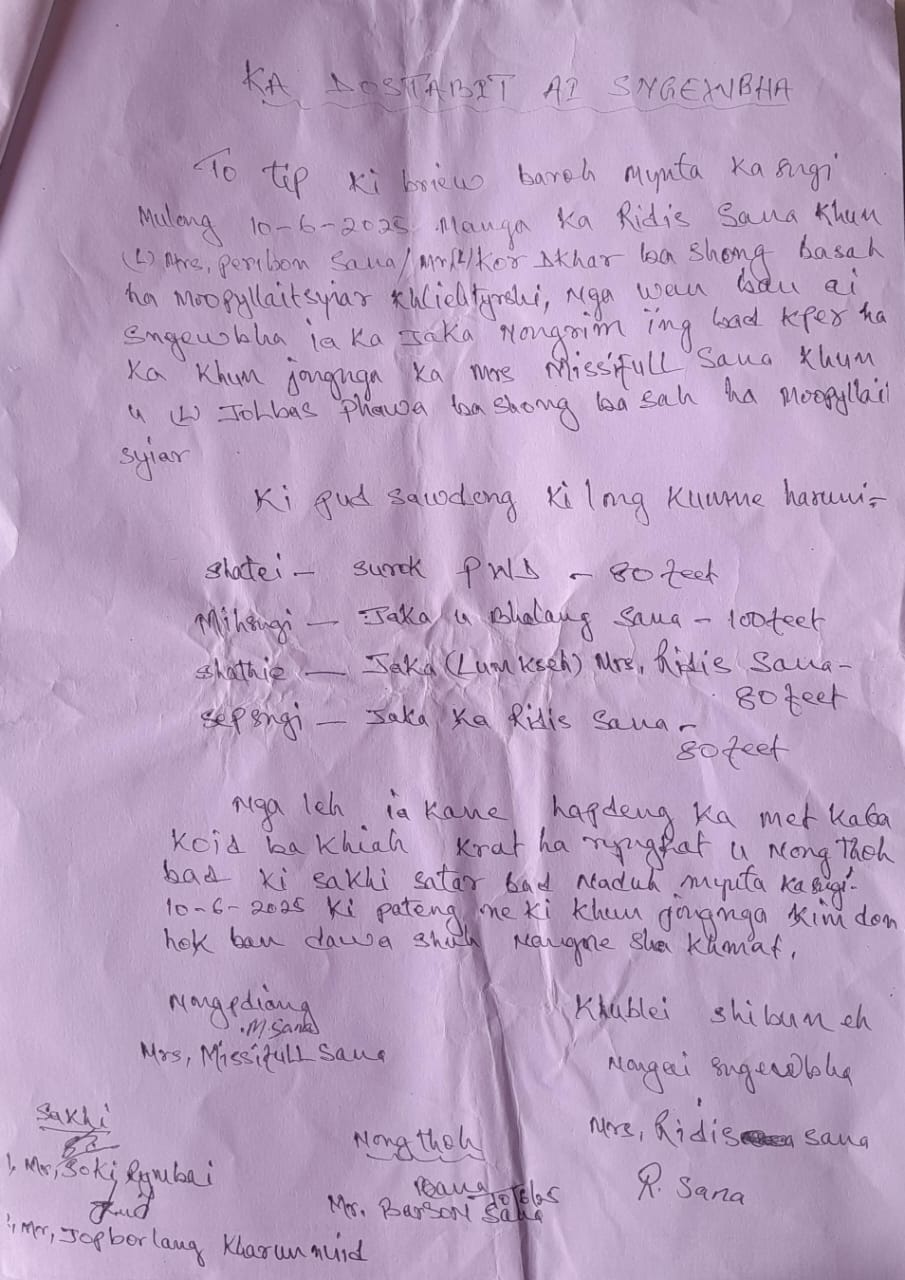 KA DOSTABIT AI SNGEWBHA
To tip ki briew baroh mynta ka sngi
Muleng 10-6-2025 Manga ka Ridis Sana Khun
(L) Mrs, peribon Sana/Mr(L)/Kor Dkhar ba shong basah
ha Moopyllaitsyiar Khliehtyrshi, Nga wan ban ai
Sngewbha ia ka Jaka Nongrim ing bad kper ha
ka khun jongnga ka Mrs Missifull Sana Khun
u (L) Johbas Phawa ba shong ba sah ha Moopyllait
syiar
Ki pud sawdong ki long kumne harum:-
shatei - surok PWD - 80 feet
Mihsngi - Jaka u Bhalang Sana - 100 feet
shathie - Jaka (Lum kseh) Mrs, Ridis Sana -
80 feet
sepsngi - Jaka Ka Ridis Sana -
80 feet
Nga leh ia kane hapdeng ka met kaba
koid ba khiah krat ha nyngkat u Nongthoh
bad ki sakhi satar bad Naduh mynta ka sngi
10-6-2025 ki pateng ne ki khun jongnga kim don
hok ban dawa shuh Nangne sha khmat,
Nongpdiang
M. Sana
Mrs, Missifull Sana
Khublei shibun eh
Nongai sngewbha
Mrs, Ridis Sana
R. Sana
Sakhi
1, Mr, Soki Rymbai
Mr, Jopborlang Kharumnuid
Nongthoh
Mr. BarSon Sana